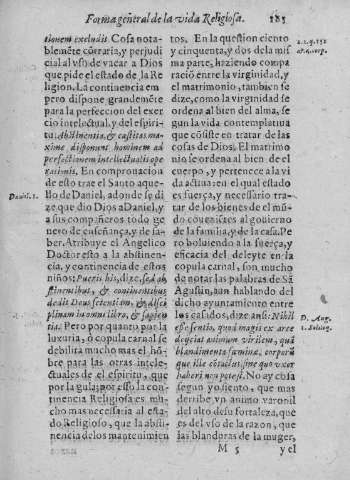 Forma general de la vida Religiosa. 185
tionem excludit. Cosa nota-
blemẽte cõtraria, y perjudi
cial al vso de vacar a Dios
que pide el estado de la Re
ligion. La continencia em
pero dispone grandemẽte
para la perfeccion del exer
cio intelectual, y del espiri-
tu: Abstinentia, & castitas ma
xime disponunt hominem ad
perfectionem intellectualis ope
rationis. En comprouacion
de esto trae el Santo aque-
llo de Daniel, adonde se di
ze que dio Dios a Daniel, y
a sus compañeros todo ge
nero de enseñança, y de sa-
ber. Atribuye el Angelico
Doctor esto a la abstinen-
cia, y continencia de estos
niños: Pueris his, dize, sed ab
stinentibus, & continentibus
dedit Deus scientiam, & disci
plinam in omni libro, & sapien
tia. Pero por quanto por la
luxuria, ò copula carnal se
debilita mucho mas el hõ-
bre para las otras intele-
ctuales de el espiritu, que
por la gula; por esso la con
tinencia Religiosa es mu-
cho mas necessaria al esta-
do Religioso, que la absti-
nencia de los mantenimien
Daniel. 1.
tos. En la question ciento
y cincuenta, y dos de la mis
ma parte, haziendo compa
racio entre la virginidad, y
el matrimonio, tambien se
dize, como la virginidad se
ordena al bien del alma, se
gun la vida contemplatiua
que cõsiste en tratar de las
cosas de Dios. El matrimo
nio se ordena al bien de el
cuerpo, y pertenece a la vi
da actiua: en el qual estado
es fuerça, y necessario tra-
tar de los bienes de el mũ-
do conuenientes al gouierno
de la familia, y de la casa. Pe
ro boluiendo a la fuerça, y
eficacia del deleyte en la
copula carnal, son mucho
de notar las palabras de Sã
Agustin, que hablando del
dicho ayuntamiento entre
los casados, dize ansi: Nihil
esse sentio, quod magis ex arce
deijciat animum virilem, quã
blandimenta fœminæ, corporũ
que ille cõtactus, sine quo vxor
haberi non potest. No ay cosa
segun yo siento, que mas
derribe vn animo varonil
del alto de su fortaleza, que
es del vso de la razon, que
las blanduras de la muger,
2.2.q.152
D. Aug.
1. Soliloq.
M 5 y el